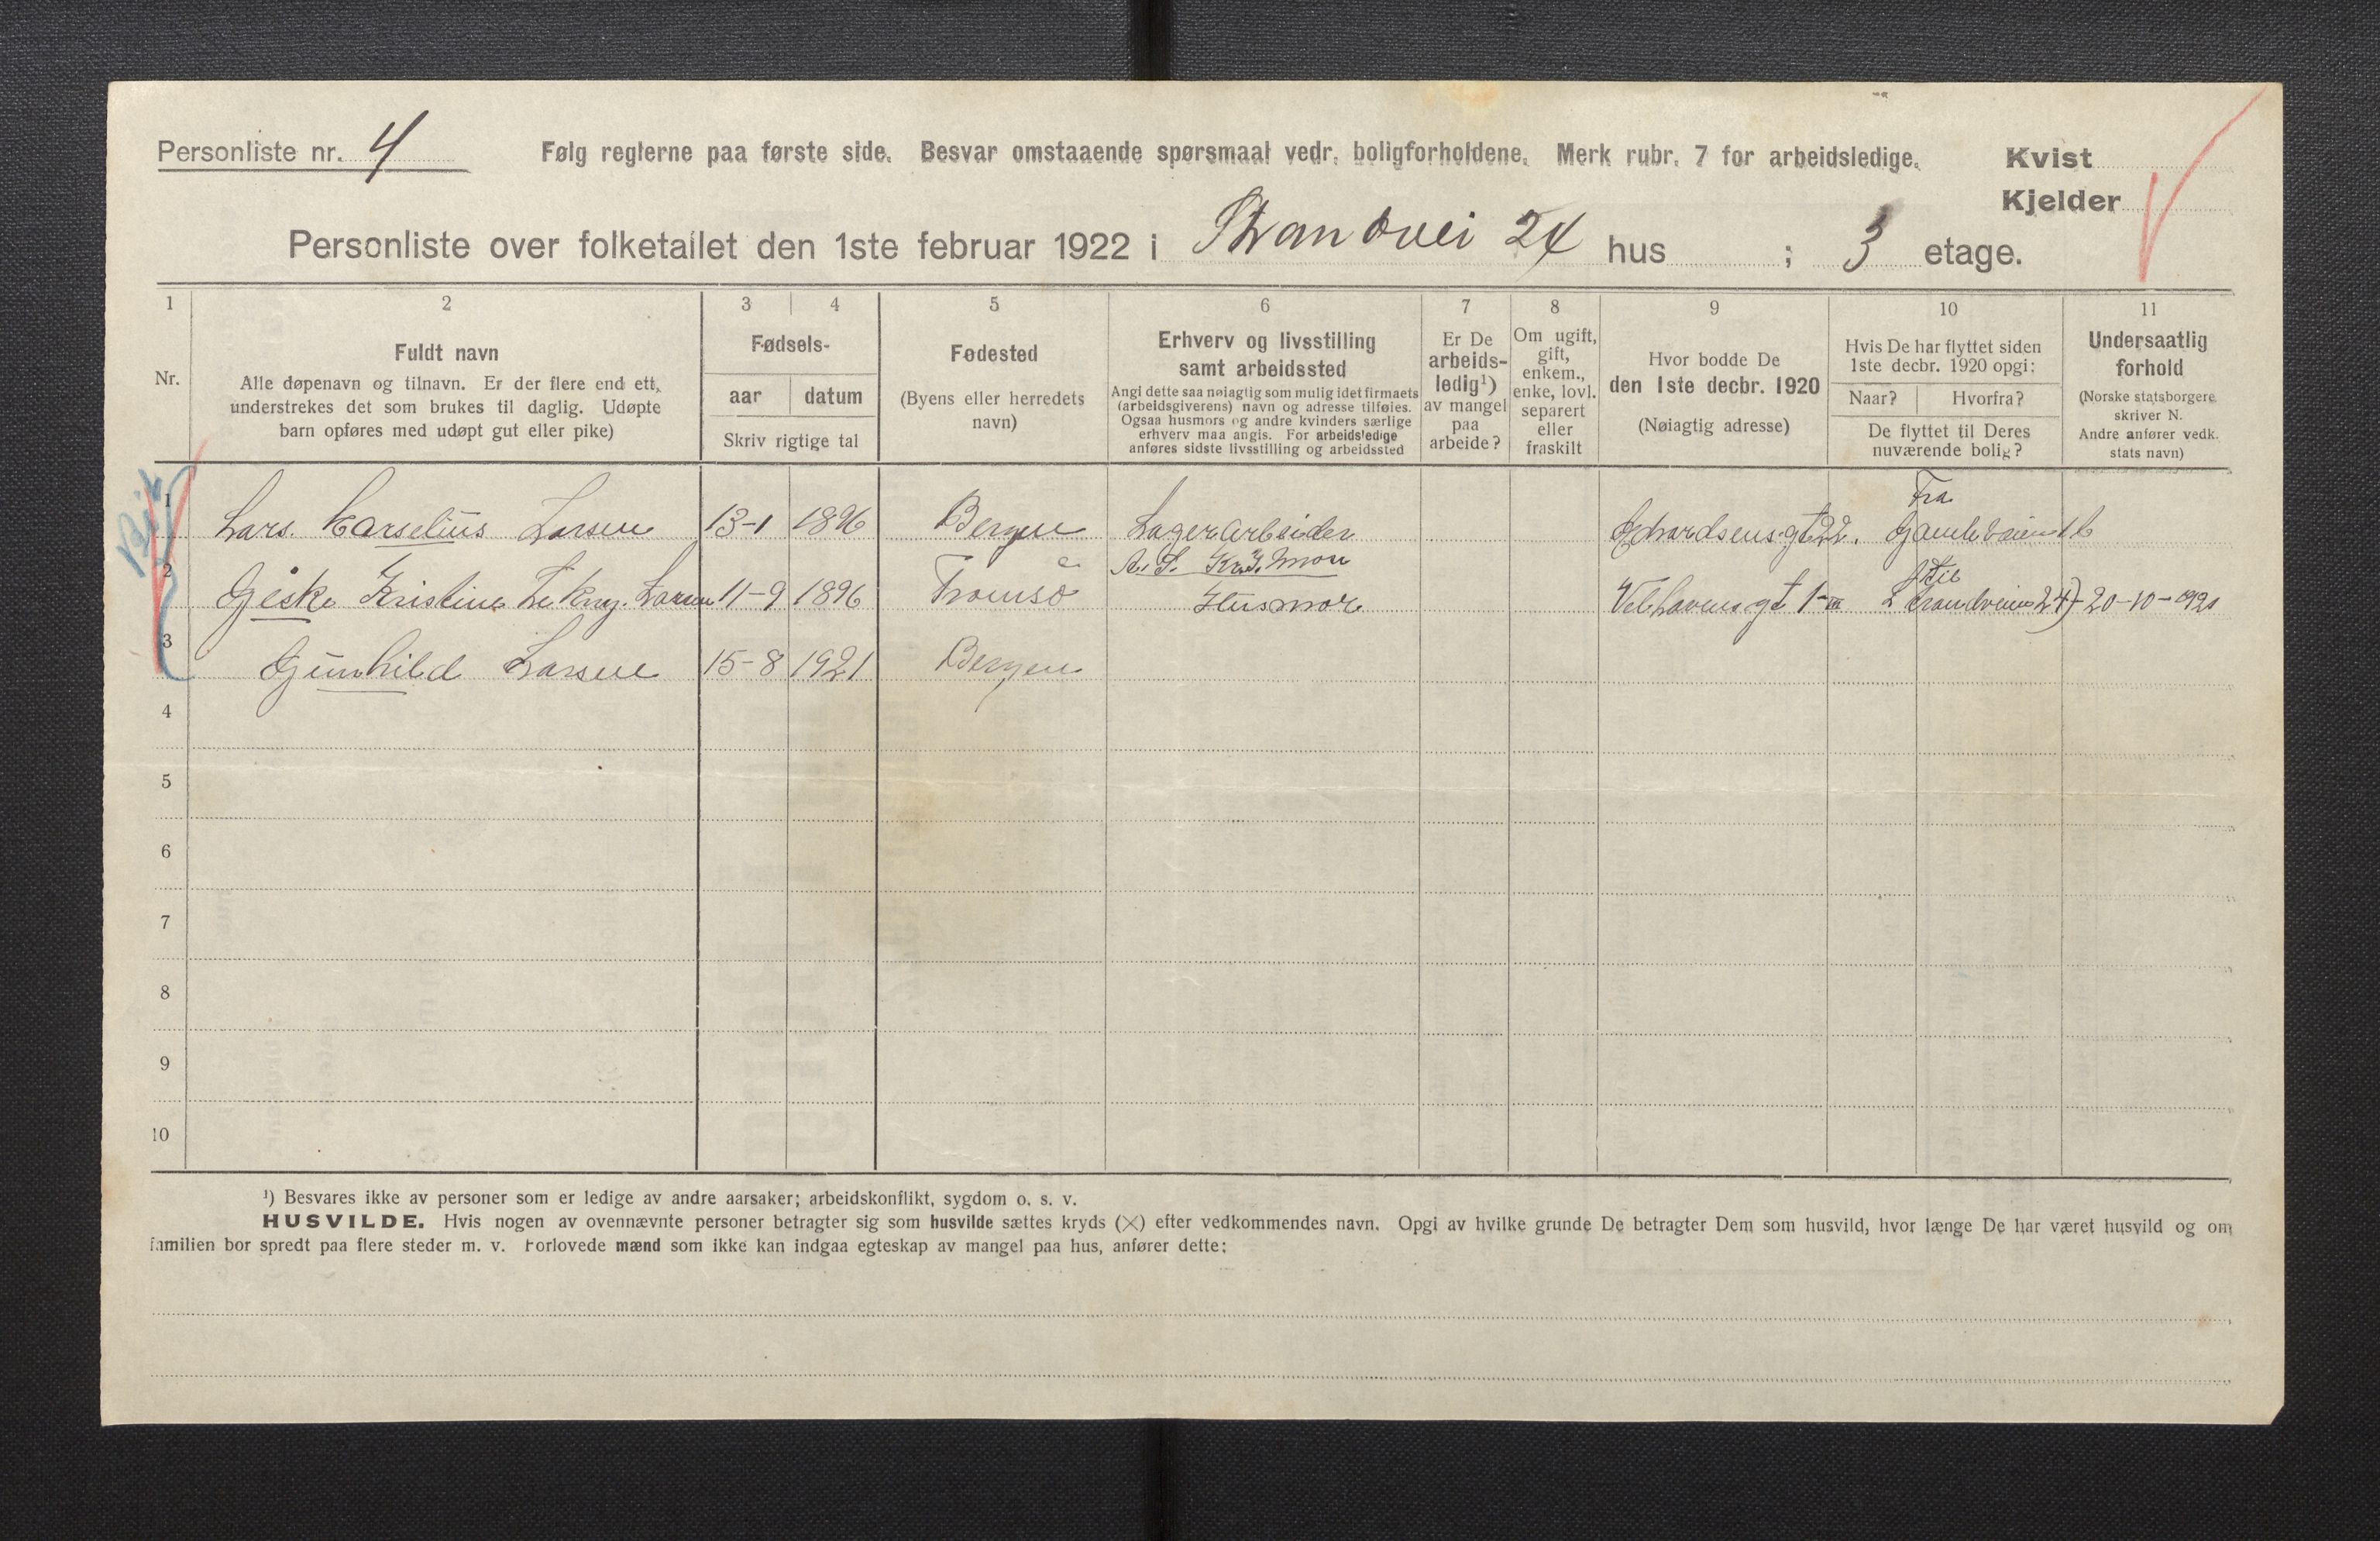 Personliste nr. 4
Følg reglerne paa første side. Besvar omstaaende spørsmaal vedr. boligforholdene. Merk rubr. 7 for arbeidsledige.
Kvist
Kjelder
Personliste over folketallet den 1ste februar 1922 i Strandvei 24 hus ; 3 etage.
1 2 3 4 5 6 7 8 9 10 11
Nr.
Fuldt navn
Alle døpenavn og tilnavn. Er der flere end ett,
understrekes det som brukes til daglig. Udøpte
barn opføres med udøpt gut eller pike)
Fødsels-
aar datum
Skriv rigtige tal
Fødested
(Byens eller herredets
navn)
Erhverv og livsstilling
samt arbeidssted
Angi dette saa nøiagtig som mulig idet firmaets
(arbeidsgiverens) navn og adresse tilføies.
Ogsaa husmors og andre kvinders særlige
erhverv maa angis. For arbeidsledige
anføres sidste livsstilling og arbeidssted
Er De
arbeids-
ledig¹)
av mangel
paa
arbeide?
Om ugift,
gift,
enkem.,
enke, lovl.
separert
eller
fraskilt
Hvor bodde De
den 1ste decbr. 1920
(Nøiagtig adresse)
Hvis De har flyttet siden
1ste decbr. 1920 opgi:
Naar? Hvorfra?
De flyttet til Deres
nuværende bolig?
Undersaatlig
forhold
(Norske statsborgere
skriver N.
Andre anfører vedk.
stats navn)
Fra
1 Lars. Carselius Larsen 13-1 1896 Bergen Lagerarbeider Edvardsens.gt 22. Gamleveien 16
A. S. Mon
til
2 Geske Kristine Larsen 11-9 1896 Tromsö Husmor Velhavens gt 1-III Strandveien 24) 20-10-1921
3 Gunhild Larsen 15-8 1921 Bergen
4
5
6
7
8
9
10
¹) Besvares ikke av personer som er ledige av andre aarsaker; arbeidskonflikt, sygdom o. s. v.
HUSVILDE. Hvis nogen av ovennævnte personer betragter sig som husvilde sættes kryds (×) efter vedkommendes navn. Opgi av hvilke grunde De betragter Dem som husvild, hvor længe De har været husvild og om
familien bor spredt paa flere steder m. v. Forlovede mænd som ikke kan indgaa egteskap av mangel paa hus, anfører dette: